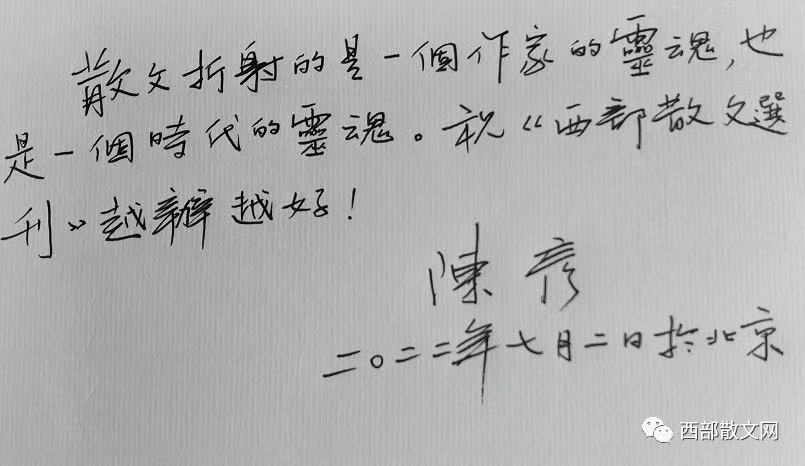 散文折射的是一個作家的靈魂，也
是一個時代的靈魂。祝《西部散文選
刊》越辦越好！
陳彦
二〇二二年七月二日於北京
西部散文网